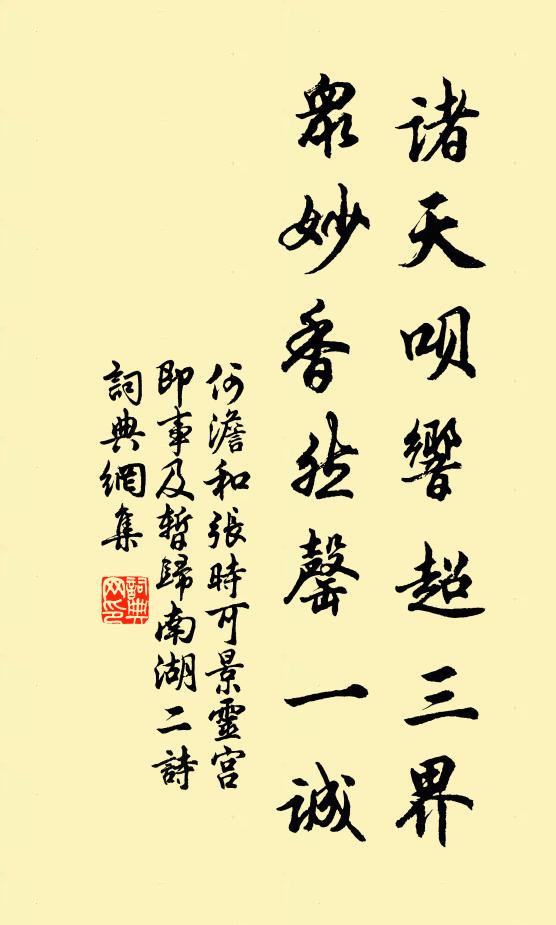 諸天唄響超三界
眾妙香然罄一誠
何澹和張時可景靈宮
即事及暫歸南湖二詩
詞典網集
詞典
网印